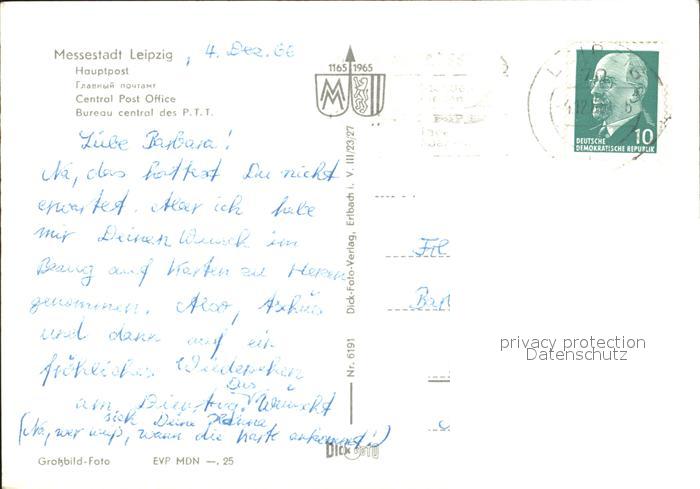 Messestadt Leipzig, 4. Dez. 66
Hauptpost
Главный почтамт
Central Post Office
Bureau central des P. T. T.
1165 1965
Liebe Barbara!
Na, das hattest Du nicht
erwartet. Aber ich habe
mir Deinen Wunsch in
Bezug auf Karten zu Herzen
genommen. Also, tschüs
und dann auf ein
fröhliches Wiedersehen
am Dienstag! Das wünscht
sich Deine
(Na, wer weiß, wann die Karte ankommt!)
Großbild-Foto EVP MDN —, 25
Nr. 6191 Dick-Foto-Verlag, Erlbach i. V. III/23/27
Dick FOTO
10
DEUTSCHE
DEMOKRATISCHE REPUBLIK
privacy protection
Datenschutz